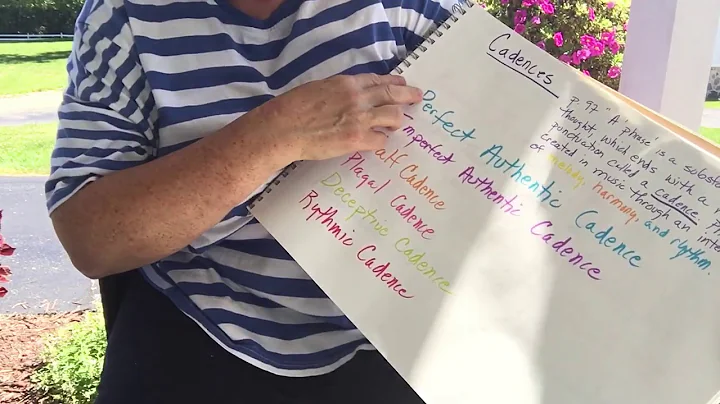 Cadences
p. 97 "A 'phrase' is a
thought, which ends with a
punctuation called a cadence.
created in music through an
of melody, harmony, and rhythm.
Perfect Authentic Cadence
Imperfect Authentic Cadence
Half Cadence
Plagal Cadence
Deceptive Cadence
Rythmic Cadence